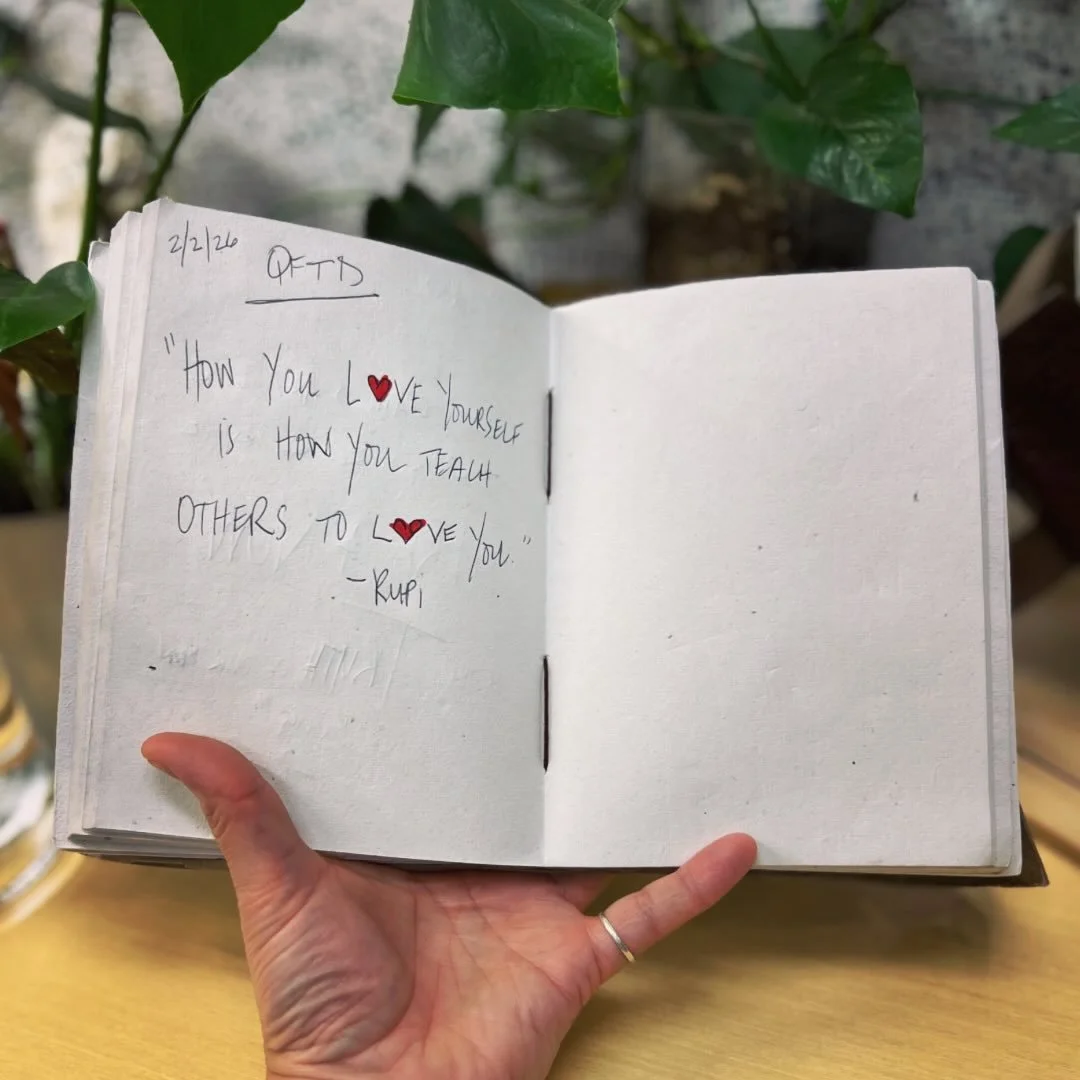 2/2/26 QFTD
"HOW YOU L♥VE YOURSELF
IS HOW YOU TEACH
OTHERS TO L♥VE YOU."
-RUPi